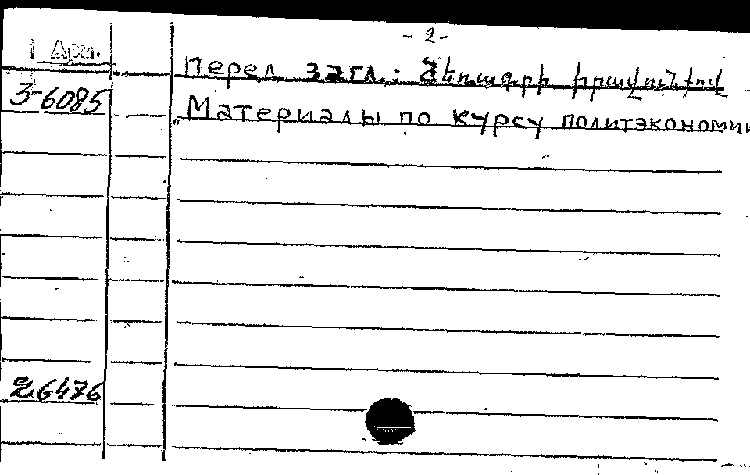 - 2 -
Арм.
Перед загл.: Ձեռագրի իրավունքով
3-6085
Материалы по курсу политэкономии
26476